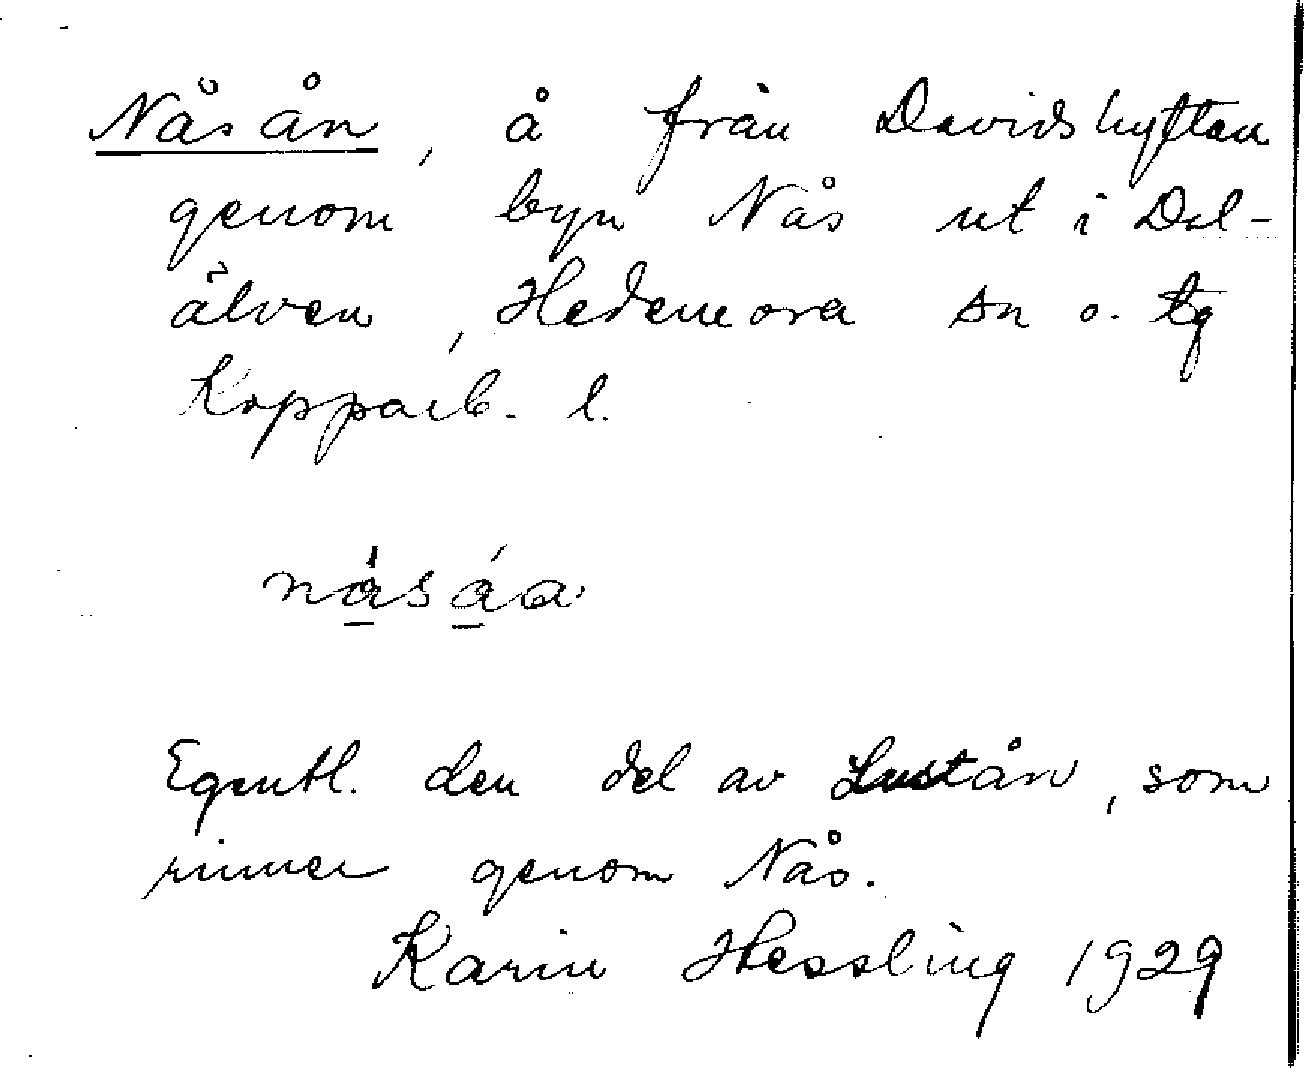 Nåsån, å från Davidshyttan
genom byn Nås ut i Dal-
älven, Hedemora sn o. tg
Kopparb. l.
nåsåa
Egentl. den del av Lustån, som
rinner genom Nås.
Karin Hessling 1929